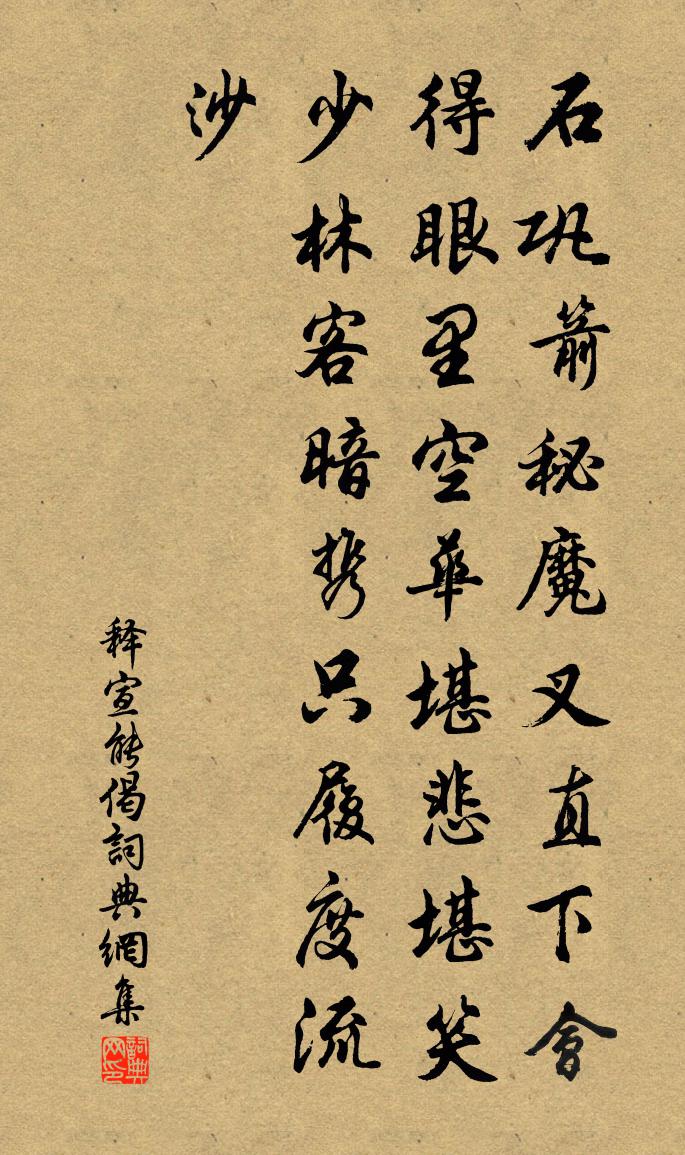 石巩箭秘魔叉直下会
得眼里空華堪悲堪笑
少林客暗携只履度流
沙
释宣能偈詞典網集
詞典网印